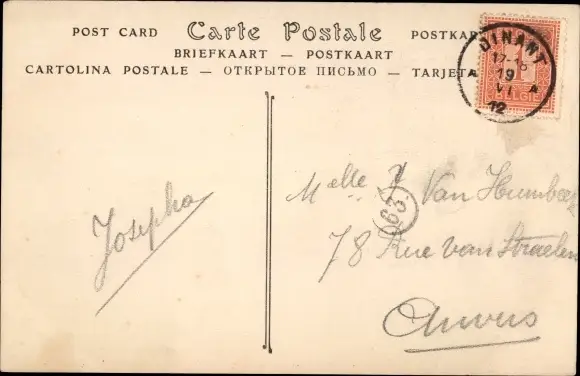 POST CARD Carte Postale POSTKAR
BRIEFKAART — POSTKAART
CARTOLINA POSTALE — ОТКРЫТОЕ ПИСЬМО — TARJETA
DINANT
12-13
19
VI
12
BELGIE
Josepha
Melle J Van Humbee
263
78 Rue van Straelen
Anvers